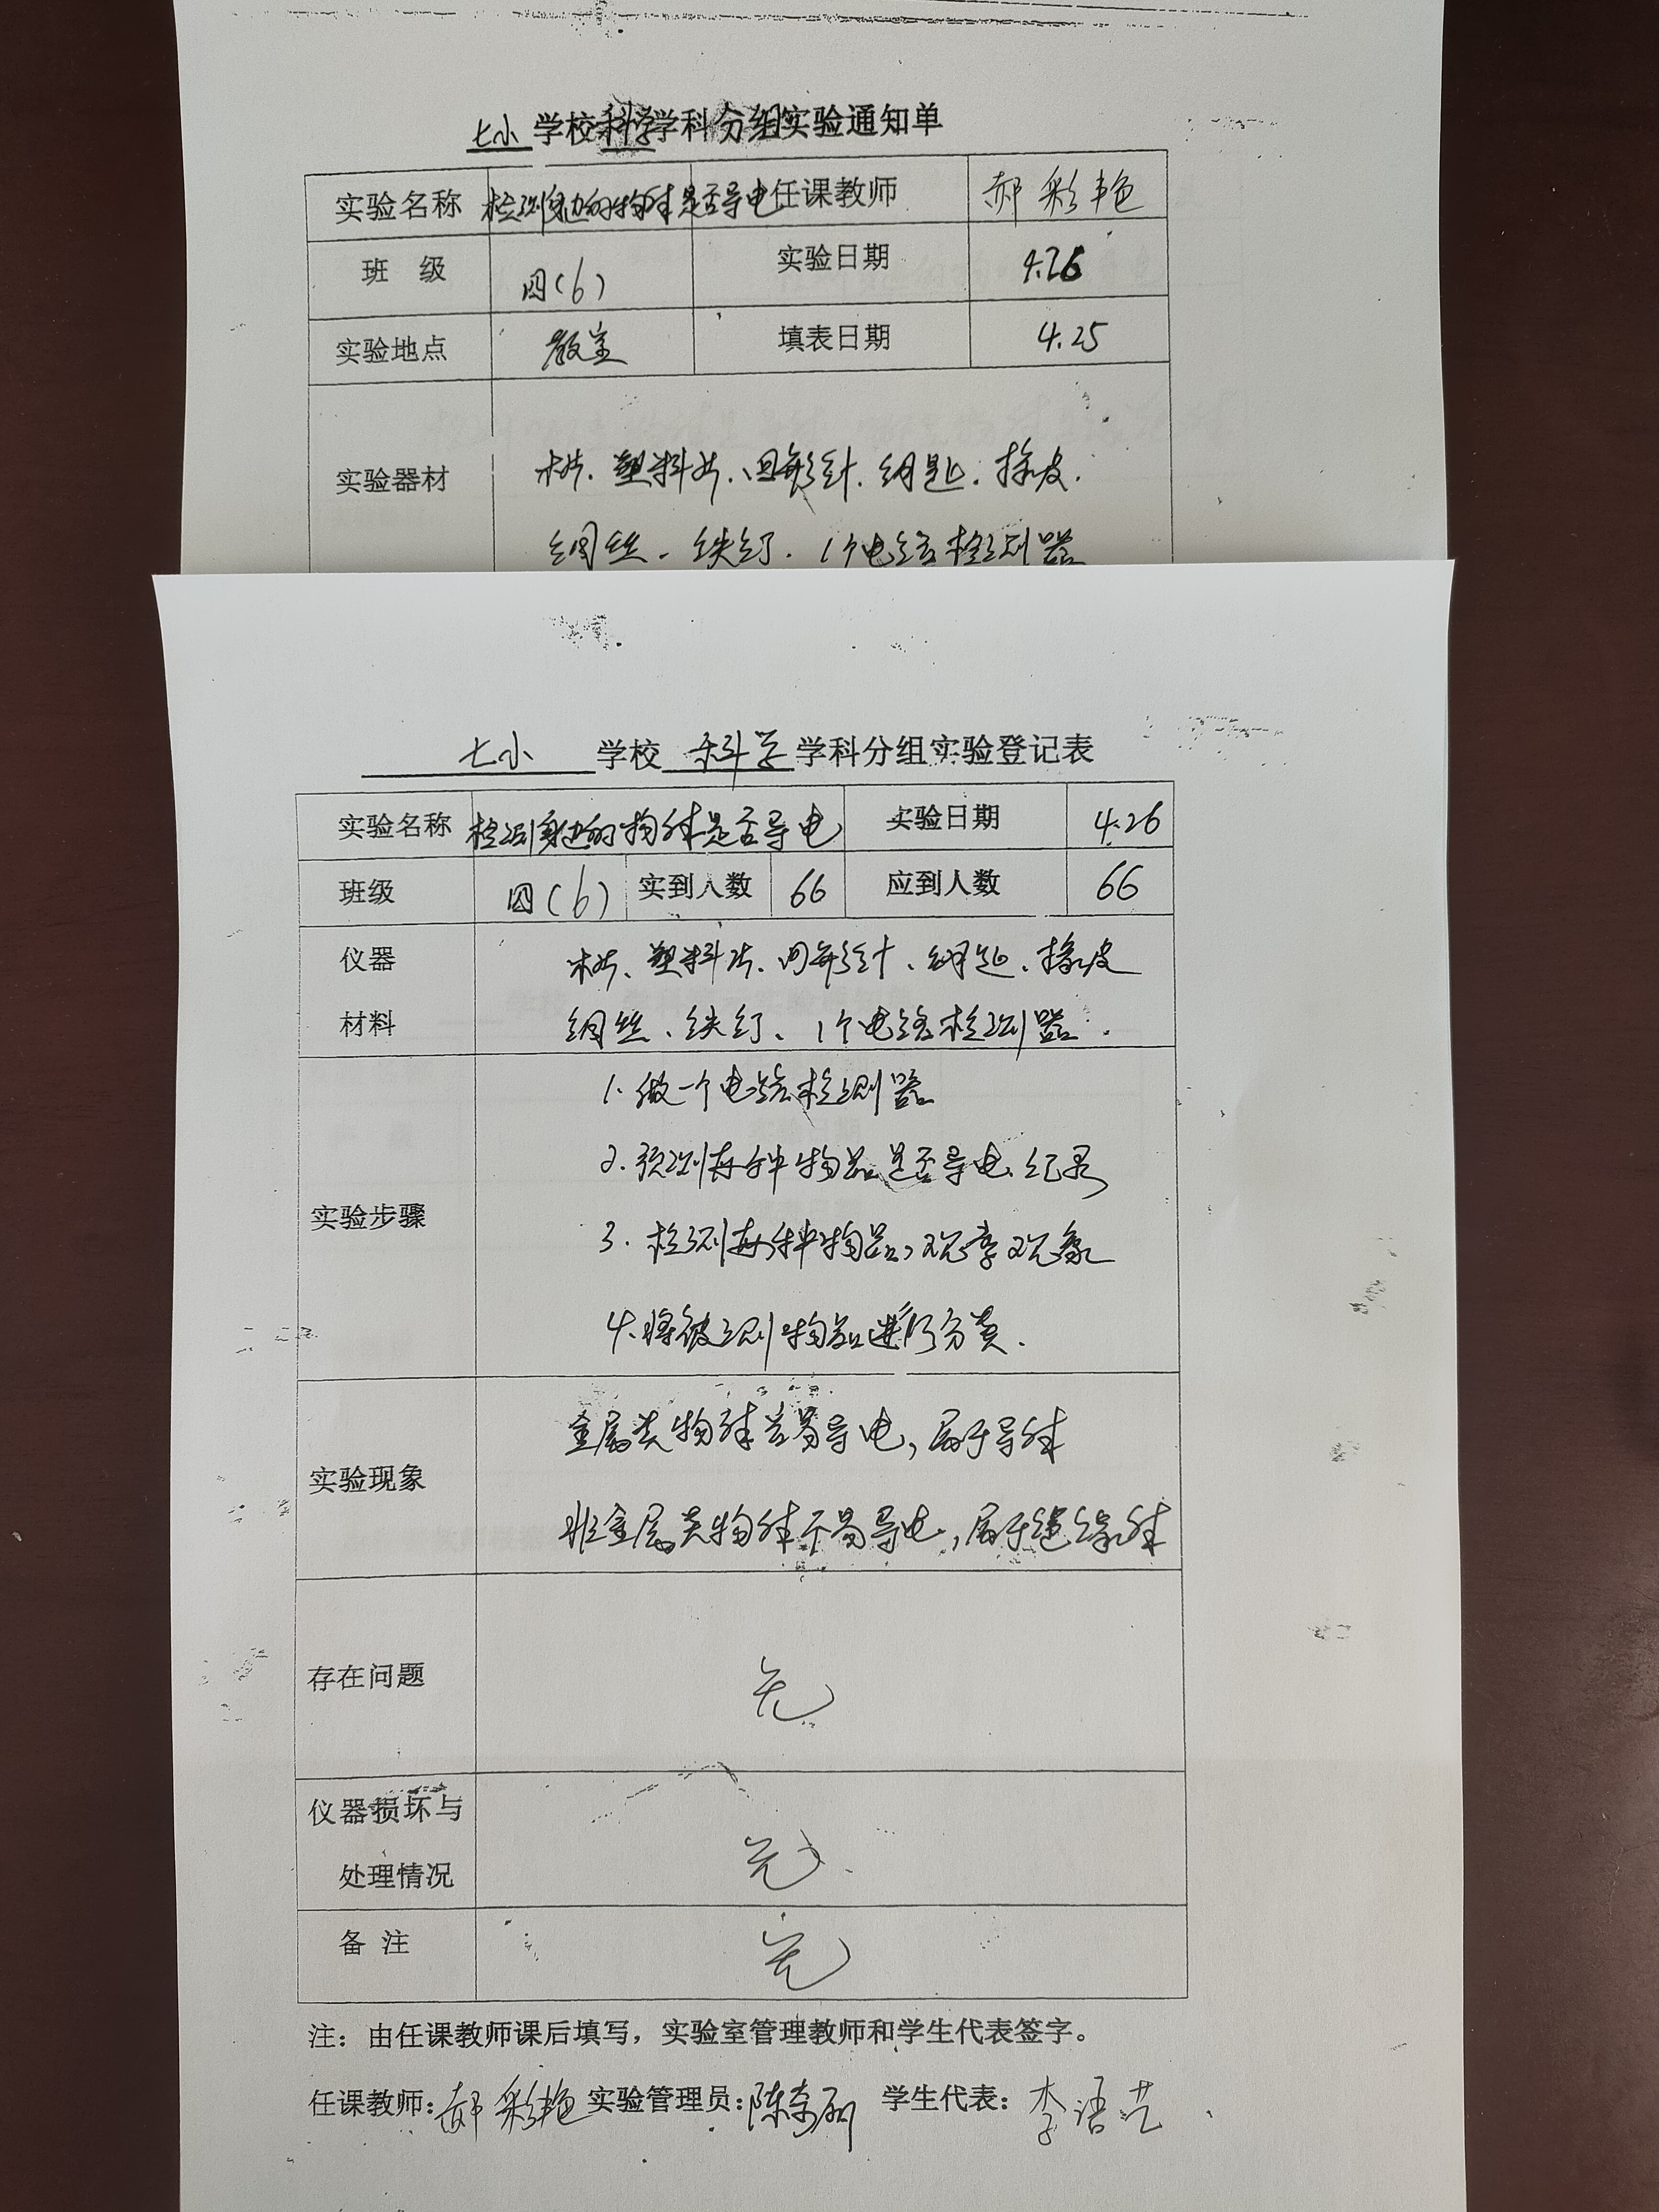 七小 学校 科学 学科分组实验通知单
实验名称 检测身边的物体是否导电 任课教师 郝彩艳
班 级 四(6) 实验日期 4.26
实验地点 教室 填表日期 4.25
实验器材 木片、塑料片、回形针、钥匙、橡皮、
铜丝、铁钉、1个电路检测器
七小 学校 科学 学科分组实验登记表
实验名称 检测身边的物体是否导电 实验日期 4.26
班级 四(6) 实到人数 66 应到人数 66
仪器 木片、塑料片、回形针、钥匙、橡皮
材料 铜丝、铁钉、1个电路检测器.
1.做一个电路检测器
2.预测每种物品是否导电、纪录
实验步骤
3.检测每种物品,观察现象
4.将被测物品进行分类.
金属类物体容易导电,属于导体
实验现象
非金属类物体不易导电,属于绝缘体
存在问题 无
仪器损坏与
处理情况 无.
备 注 无
注：由任课教师课后填写，实验室管理教师和学生代表签字。
任课教师：郝彩艳 实验管理员：陈 学生代表：李语芒